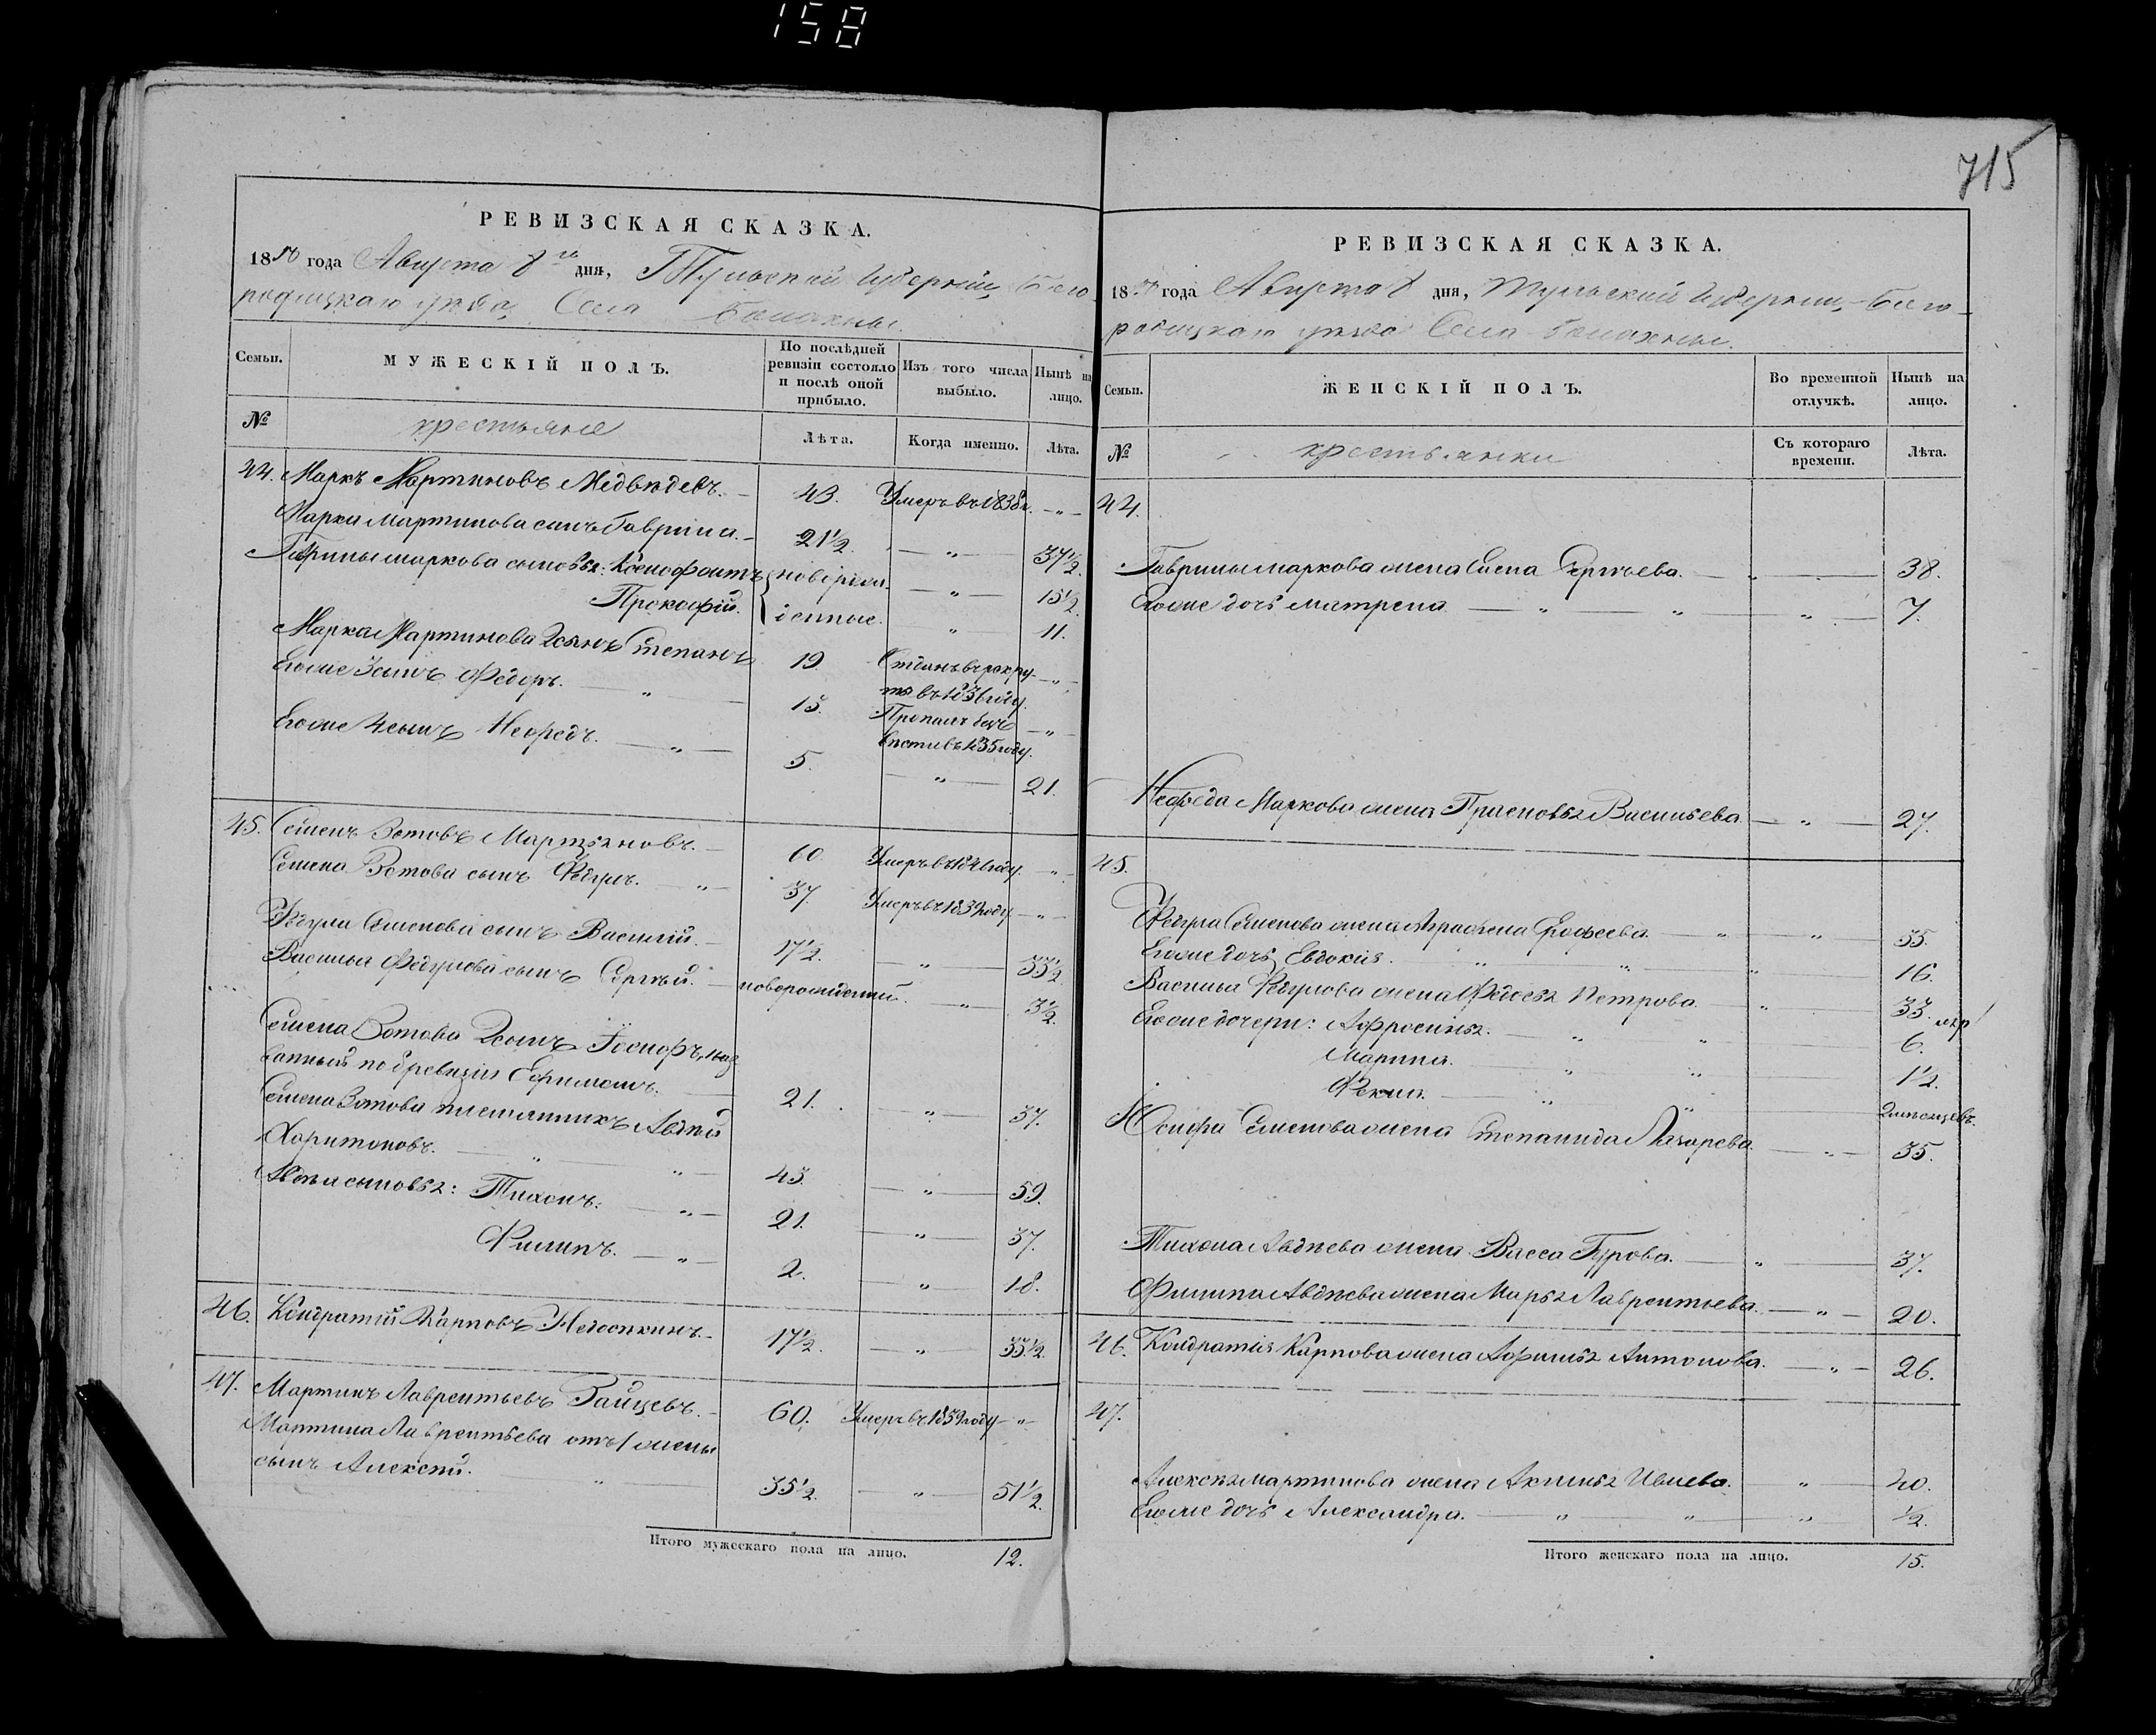 158
715
РЕВИЗСКАЯ СКАЗКА.
1850 года Августа 8го дня, Тульской Губернiи, Бого-
родицкаго уѣзда, Села
Семьи.
МУЖЕСКІЙ ПОЛЪ.
По послѣдней ревизіи состояло и послѣ оной прибыло.
Изъ того числа выбыло.
Нынѣ на лицо.
№
крестьяне
Лѣта.
Когда именно.
Лѣта.
44. Маркъ Мартиновъ Медвѣдевъ. 43. Умеръ въ 1838 г. - „ -
Марка Мартинова сынъ Гаврила. 21½. - „ - 37½.
Гаврилы Маркова сыновья: Ксенофонтъ новорож- - „ - 15½.
Прокофій. денные. „ 11.
Марка Мартинова 2 сынъ Степанъ 19. Отданъ въ рекру-
ты въ 1836 году. - „ -
Его же 3 сынъ Федоръ. - „ - 15. Пропалъ безъ
вести въ 1835 году. - „ -
Его же 4 сынъ Нефедъ. - „ - 5. - „ - 21.
45. Семенъ Зотовъ Мартыновъ. 60. Умеръ въ 1846 году. - „ -
Семена Зотова сынъ Федулъ. - „ - 37. Умеръ въ 1839 году - „ -
Федула Семенова сынъ Василій. 17½. - „ - 33½.
Василья Федулова сынъ Сергѣй. новорожденный. - „ - 3½.
Семена Зотова 2 сынъ Іосифъ, наз-
ванный по 8 ревизіи Ефимомъ. 21. - „ - 37.
Семена Зотова племянникъ Авдѣй
Харитоновъ. - „ - „ - 43. - „ - 59.
Авдѣя сыновья: Тихонъ. - „ - 21. - „ - 37.
Филипъ. - „ - 2. - „ - 18.
46. Кондратій Карповъ 17½. - „ - 33½.
47. Мартинъ Лаврентьевъ 60. Умеръ въ 1839 году - „ -
Мартина Лаврентьева отъ 1 жены
сынъ Алексѣй. „ 35½. - „ - 51½.
Итого мужескаго пола на лицо. 12.
РЕВИЗСКАЯ СКАЗКА.
1850 года Августа 8 дня, Тульской Губернiи, Бого-
родицкаго уѣзда Села
Семьи.
ЖЕНСКІЙ ПОЛЪ.
Во временной отлучкѣ.
Нынѣ на лицо.
№
крестьянки
Съ котораго времени.
Лѣта.
44.
Гаврилы Маркова жена Елена Сергѣева. - „ - 38.
Его же дочь Матрена. - „ - „ - „ - 7.
Нефеда Маркова жена Прасковья Васильева. - „ - 27.
45.
Федула Семенова жена Аграфена Ерофеева. - „ - „ - 55.
Его же дочь Евдокія. „ „ „ 16.
Василья Федулова жена Федосья Петрова. - „ - 33.
Его же дочери: Афросинья. - „ - „ - 6.
Марина. - „ - „ - 1½.
Фекла. - „ - „ - 2 мѣсяцевъ.
Осифа Семенова жена Степанида Лазарева. - „ - 35.
Тихона Авдѣева жена Васса Гурова. - „ - 37.
Филипа Авдѣева жена Марья Лаврентьева. - „ - 20.
46. Кондратія Карпова жена Афимья Антонова. - „ - 26.
47.
Алексѣя Мартинова жена Акулина - „ - 40.
Его же дочь Александра. - „ - „ - „ - ½.
Итого женскаго пола на лицо. 15.